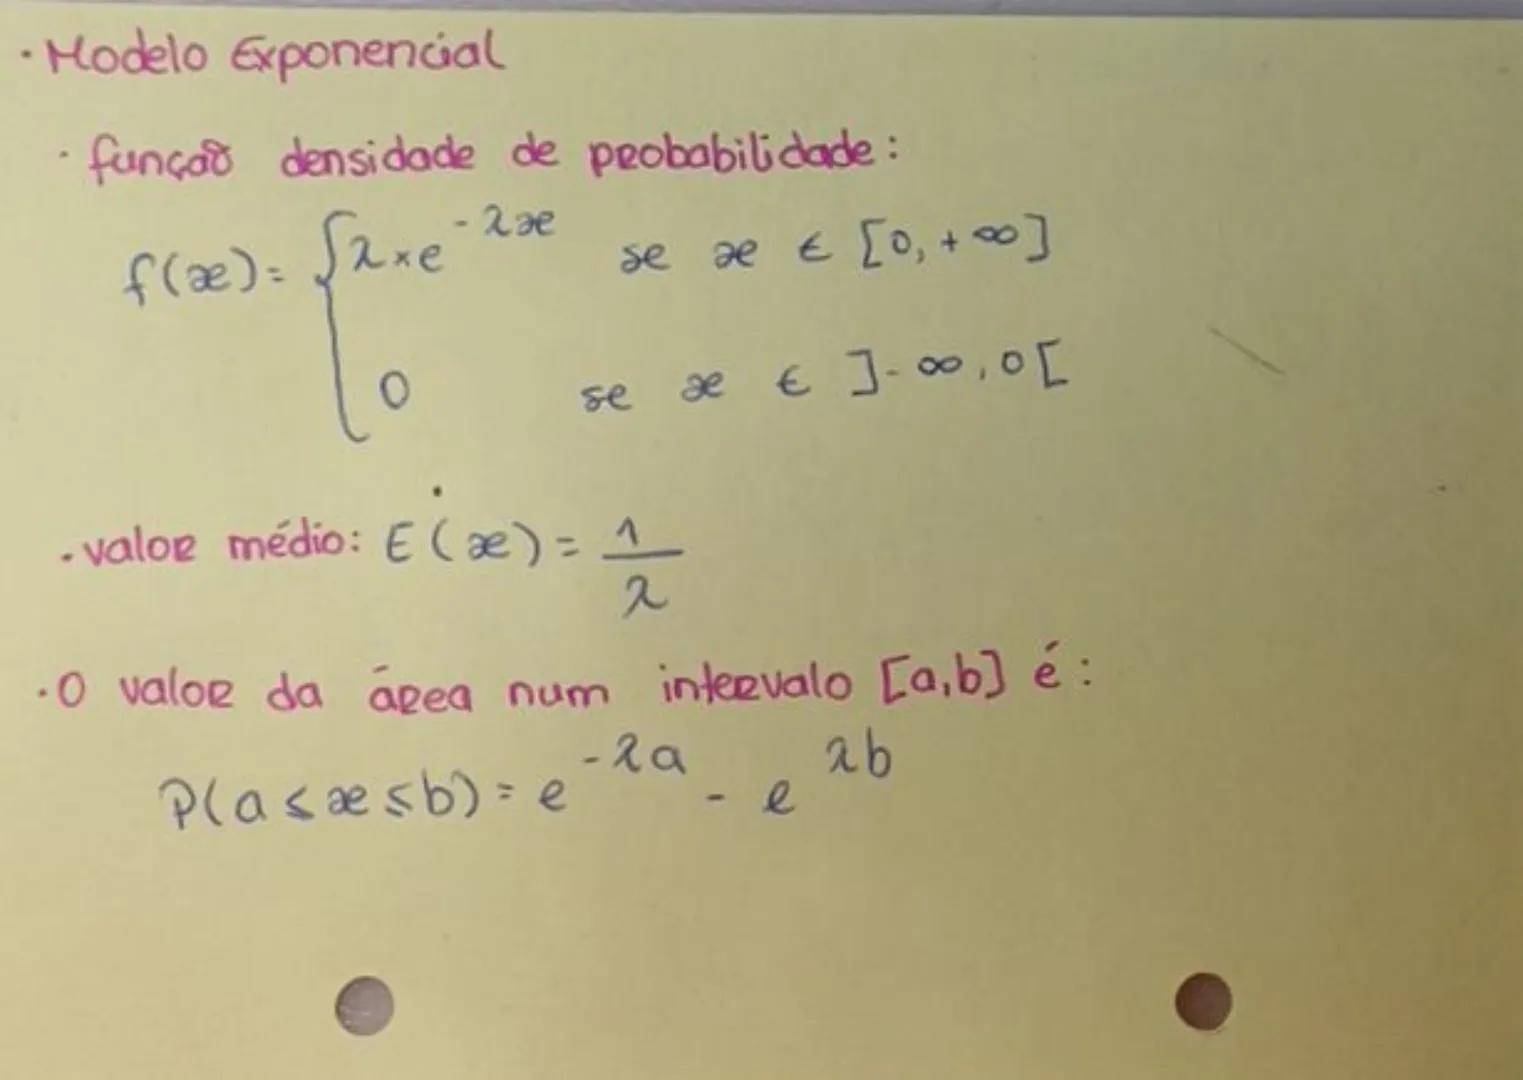 · Modelo Exponencial
· função densidade de probabilidade:
f(x)= { λ×e^{-λx} se x ∈ [0,+∞]
0 se x ∈ ]-∞,0[
· valor médio: E(x)= 1/λ
· O valor da área num intervalo [a,b] é:
P(a≤x≤b)= e^{-λa} - e^{λb}